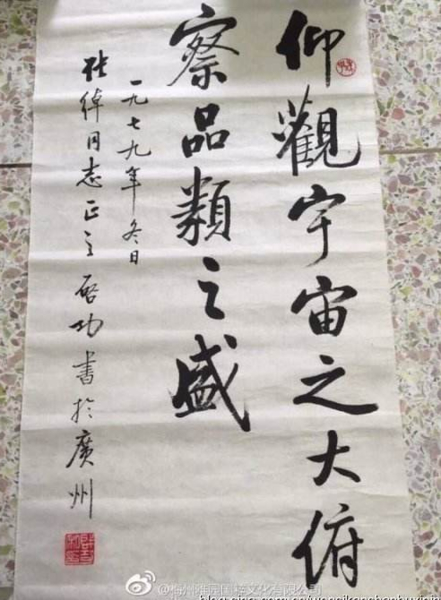 仰觀宇宙之大俯
察品類之盛
一九七九年冬日
同志正之啓功書於廣州